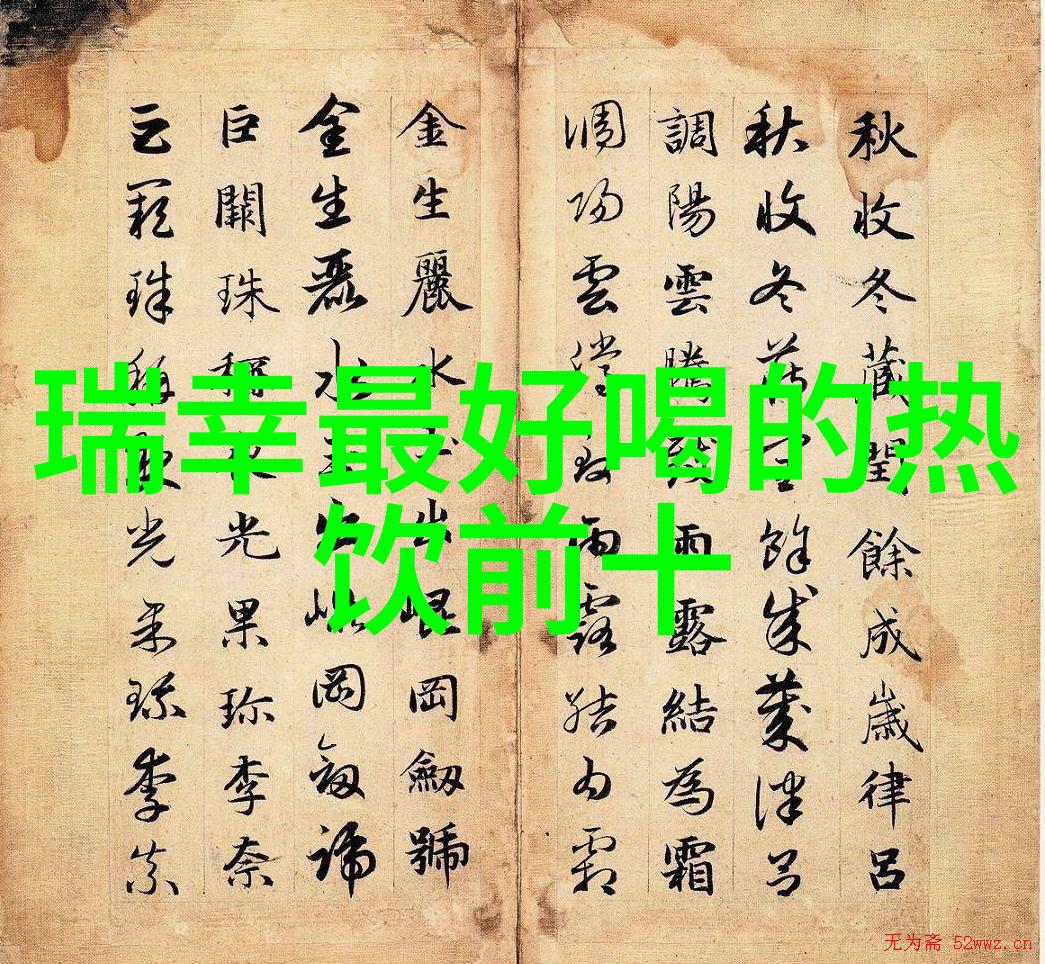 瑞幸最好喝的热
饮前十
秋收冬藏閏餘成歲律呂
秋收冬藏閏餘成歲律呂
調陽雲騰致雨露結為霜
調陽雲騰致雨露結為霜
金生麗水玉出崐岡劒號
金生麗水玉出崐岡劒號
巨闕珠稱夜光果珍李柰
巨闕珠稱夜光果珍李柰
无为斋 52wwz.cn